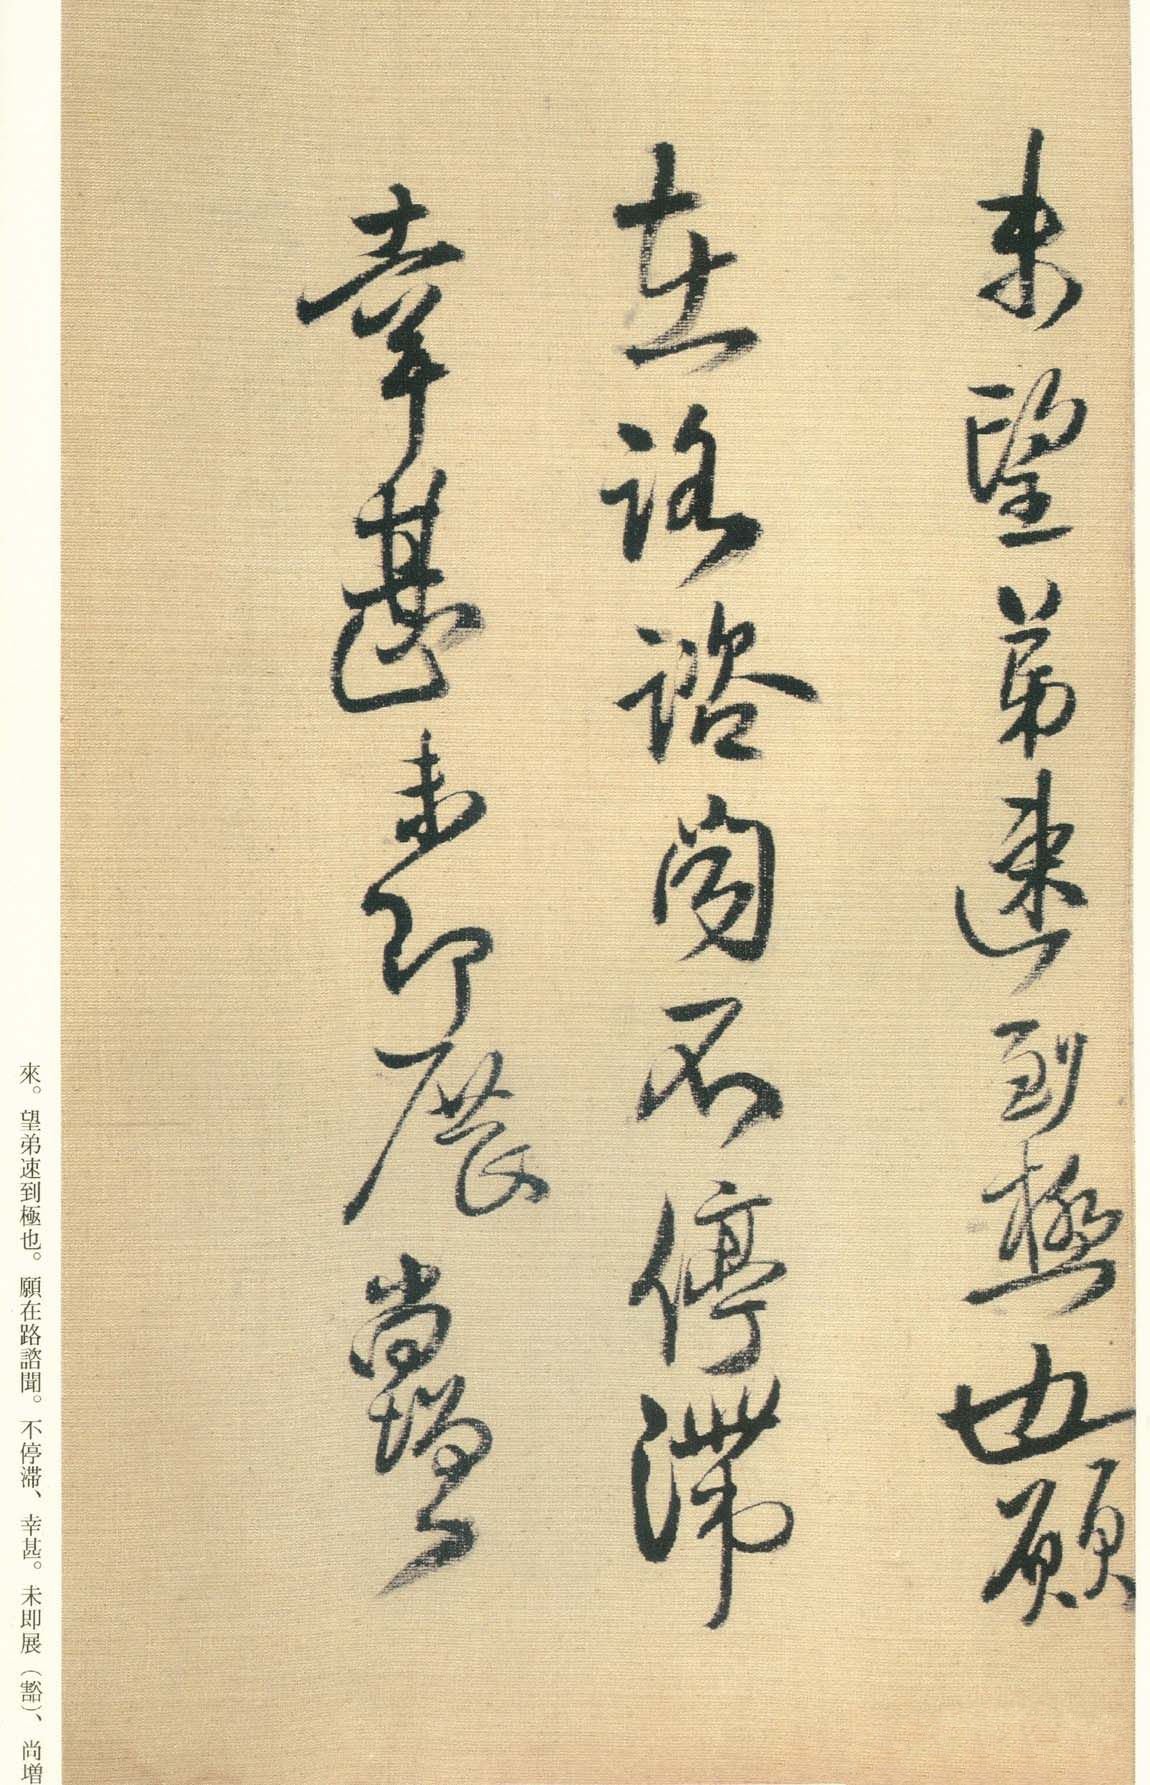 来望弟速到極也願
在路諮聞不停滯
幸甚未即展尚增
來。望弟速到極也。願在路諮聞。不停滯、幸甚。未即展（豁）、尚増